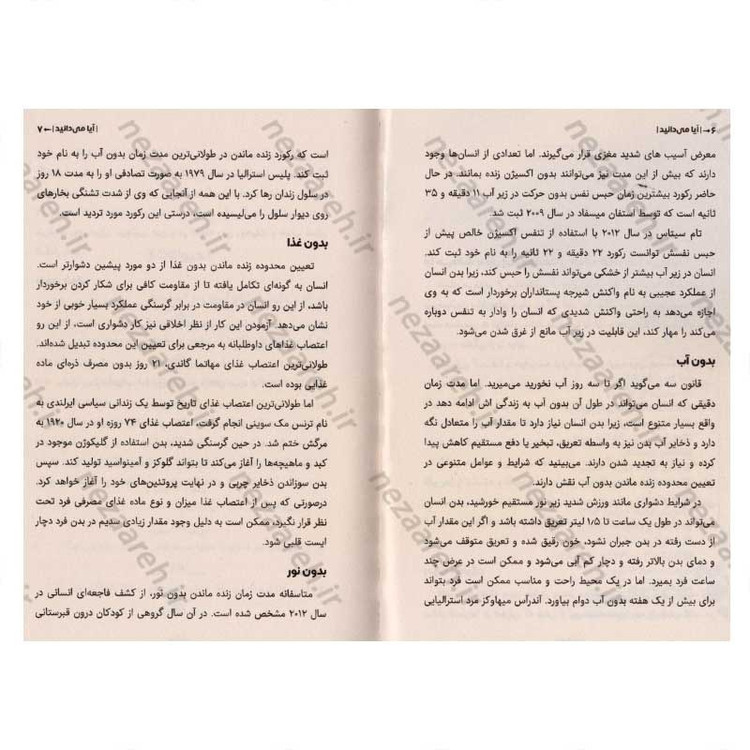 ۶ ← | آیا می‌دانید |
معرض آسیب های شدید مغزی قرار می‌گیرند. اما تعدادی از انسان‌ها وجود
دارند که بیش از این مدت نیز می‌توانند بدون اکسیژن زنده بمانند. در حال
حاضر رکورد بیشترین زمان حبس نفس بدون حرکت در زیر آب ۱۱ دقیقه و ۳۵
ثانیه است که توسط استفان میسفاد در سال ۲۰۰۹ ثبت شد.
تام سیتاس در سال ۲۰۱۲ با استفاده از تنفس اکسیژن خالص پیش از
حبس نفسش توانست رکورد ۲۲ دقیقه و ۲۲ ثانیه را به نام خود ثبت کند.
انسان در زیر آب بیشتر از خشکی می‌تواند نفسش را حبس کند، زیرا بدن انسان
از عملکرد عجیبی به نام واکنش شیرجه پستانداران برخوردار است که به وی
اجازه می‌دهد به راحتی واکنش شدیدی که انسان را وادار به تنفس دوباره
می‌کند را مهار کند، این قابلیت در زیر آب مانع از غرق شدن می‌شود.
بدون آب
قانون سه می‌گوید اگر تا سه روز آب نخورید می‌میرید. اما مدت زمان
دقیقی که انسان می‌تواند در طول آن بدون آب به زندگی اش ادامه دهد در
واقع بسیار متنوع است، زیرا بدن انسان نیاز دارد تا مقدار آب را متعادل نگه
دارد و ذخایر آب بدن نیز به واسطه تعریق، تبخیر یا دفع مستقیم کاهش پیدا
کرده و نیاز به تجدید شدن دارند. می‌بینید که شرایط و عوامل متنوعی در
تعیین محدوده زنده ماندن بدون آب نقش دارند.
در شرایط دشواری مانند ورزش شدید زیر نور مستقیم خورشید، بدن انسان
می‌تواند در طول یک ساعت تا ۱/۵ لیتر تعریق داشته باشد و اگر این مقدار آب
از دست رفته در بدن جبران نشود، خون رقیق شده و تعریق متوقف می‌شود
و دمای بدن بالاتر رفته و دچار کم آبی می‌شود و ممکن است در عرض چند
ساعت فرد بمیرد. اما در یک محیط راحت و مناسب ممکن است فرد بتواند
برای بیش از یک هفته بدون آب دوام بیاورد. آندرآس میهاوکز مرد استرالیایی
| آیا می‌دانید | → ۷
است که رکورد زنده ماندن در طولانی‌ترین مدت زمان بدون آب را به نام خود
ثبت کند. پلیس استرالیا در سال ۱۹۷۹ به صورت تصادفی او را به مدت ۱۸ روز
در سلول زندان رها کرد. با این همه از آنجایی که وی از شدت تشنگی بخارهای
روی دیوار سلول را می‌لیسیده است، درستی این رکورد مورد تردید است.
بدون غذا
تعیین محدوده زنده ماندن بدون غذا از دو مورد پیشین دشوارتر است.
انسان به گونه‌ای تکامل یافته تا از مقاومت کافی برای شکار کردن برخوردار
باشد، از این رو انسان در مقاومت در برابر گرسنگی عملکرد بسیار خوبی از خود
نشان می‌دهد. آزمودن این کار از نظر اخلاقی نیز کار دشواری است، از این رو
اعتصاب غذاهای داوطلبانه به مرجعی برای تعیین این محدوده تبدیل شده‌اند.
طولانی‌ترین اعتصاب غذای مهاتما گاندی، ۲۱ روز بدون مصرف ذره‌ای ماده
غذایی بوده است.
اما طولانی‌ترین اعتصاب غذای تاریخ توسط یک زندانی سیاسی ایرلندی به
نام ترنس مک سوینی انجام گرفت، اعتصاب غذای ۷۴ روزه او در سال ۱۹۲۰ به
مرگش ختم شد. در حین گرسنگی شدید، بدن استفاده از گلیکوژن موجود در
کبد و ماهیچه‌ها را آغاز می‌کند تا بتواند گلوکز و آمینواسید تولید کند. سپس
بدن سوزاندن ذخایر چربی و در نهایت پروتئین‌های خود را آغاز خواهد کرد.
درصورتی که پس از اعتصاب غذا میزان و نوع ماده غذای مصرفی فرد تحت
نظر قرار نگیرد، ممکن است به دلیل وجود مقدار زیادی سدیم در بدن فرد دچار
ایست قلبی شود.
بدون نور
متاسفانه مدت زمان زنده ماندن بدون نور، از کشف فاجعه‌ای انسانی در
سال ۲۰۱۲ مشخص شده است. در آن سال گروهی از کودکان درون قبرستانی
nezaareh.ir
nezaareh.ir
nezaareh.ir
nezaareh.ir
nezaareh.ir
nezaareh.ir